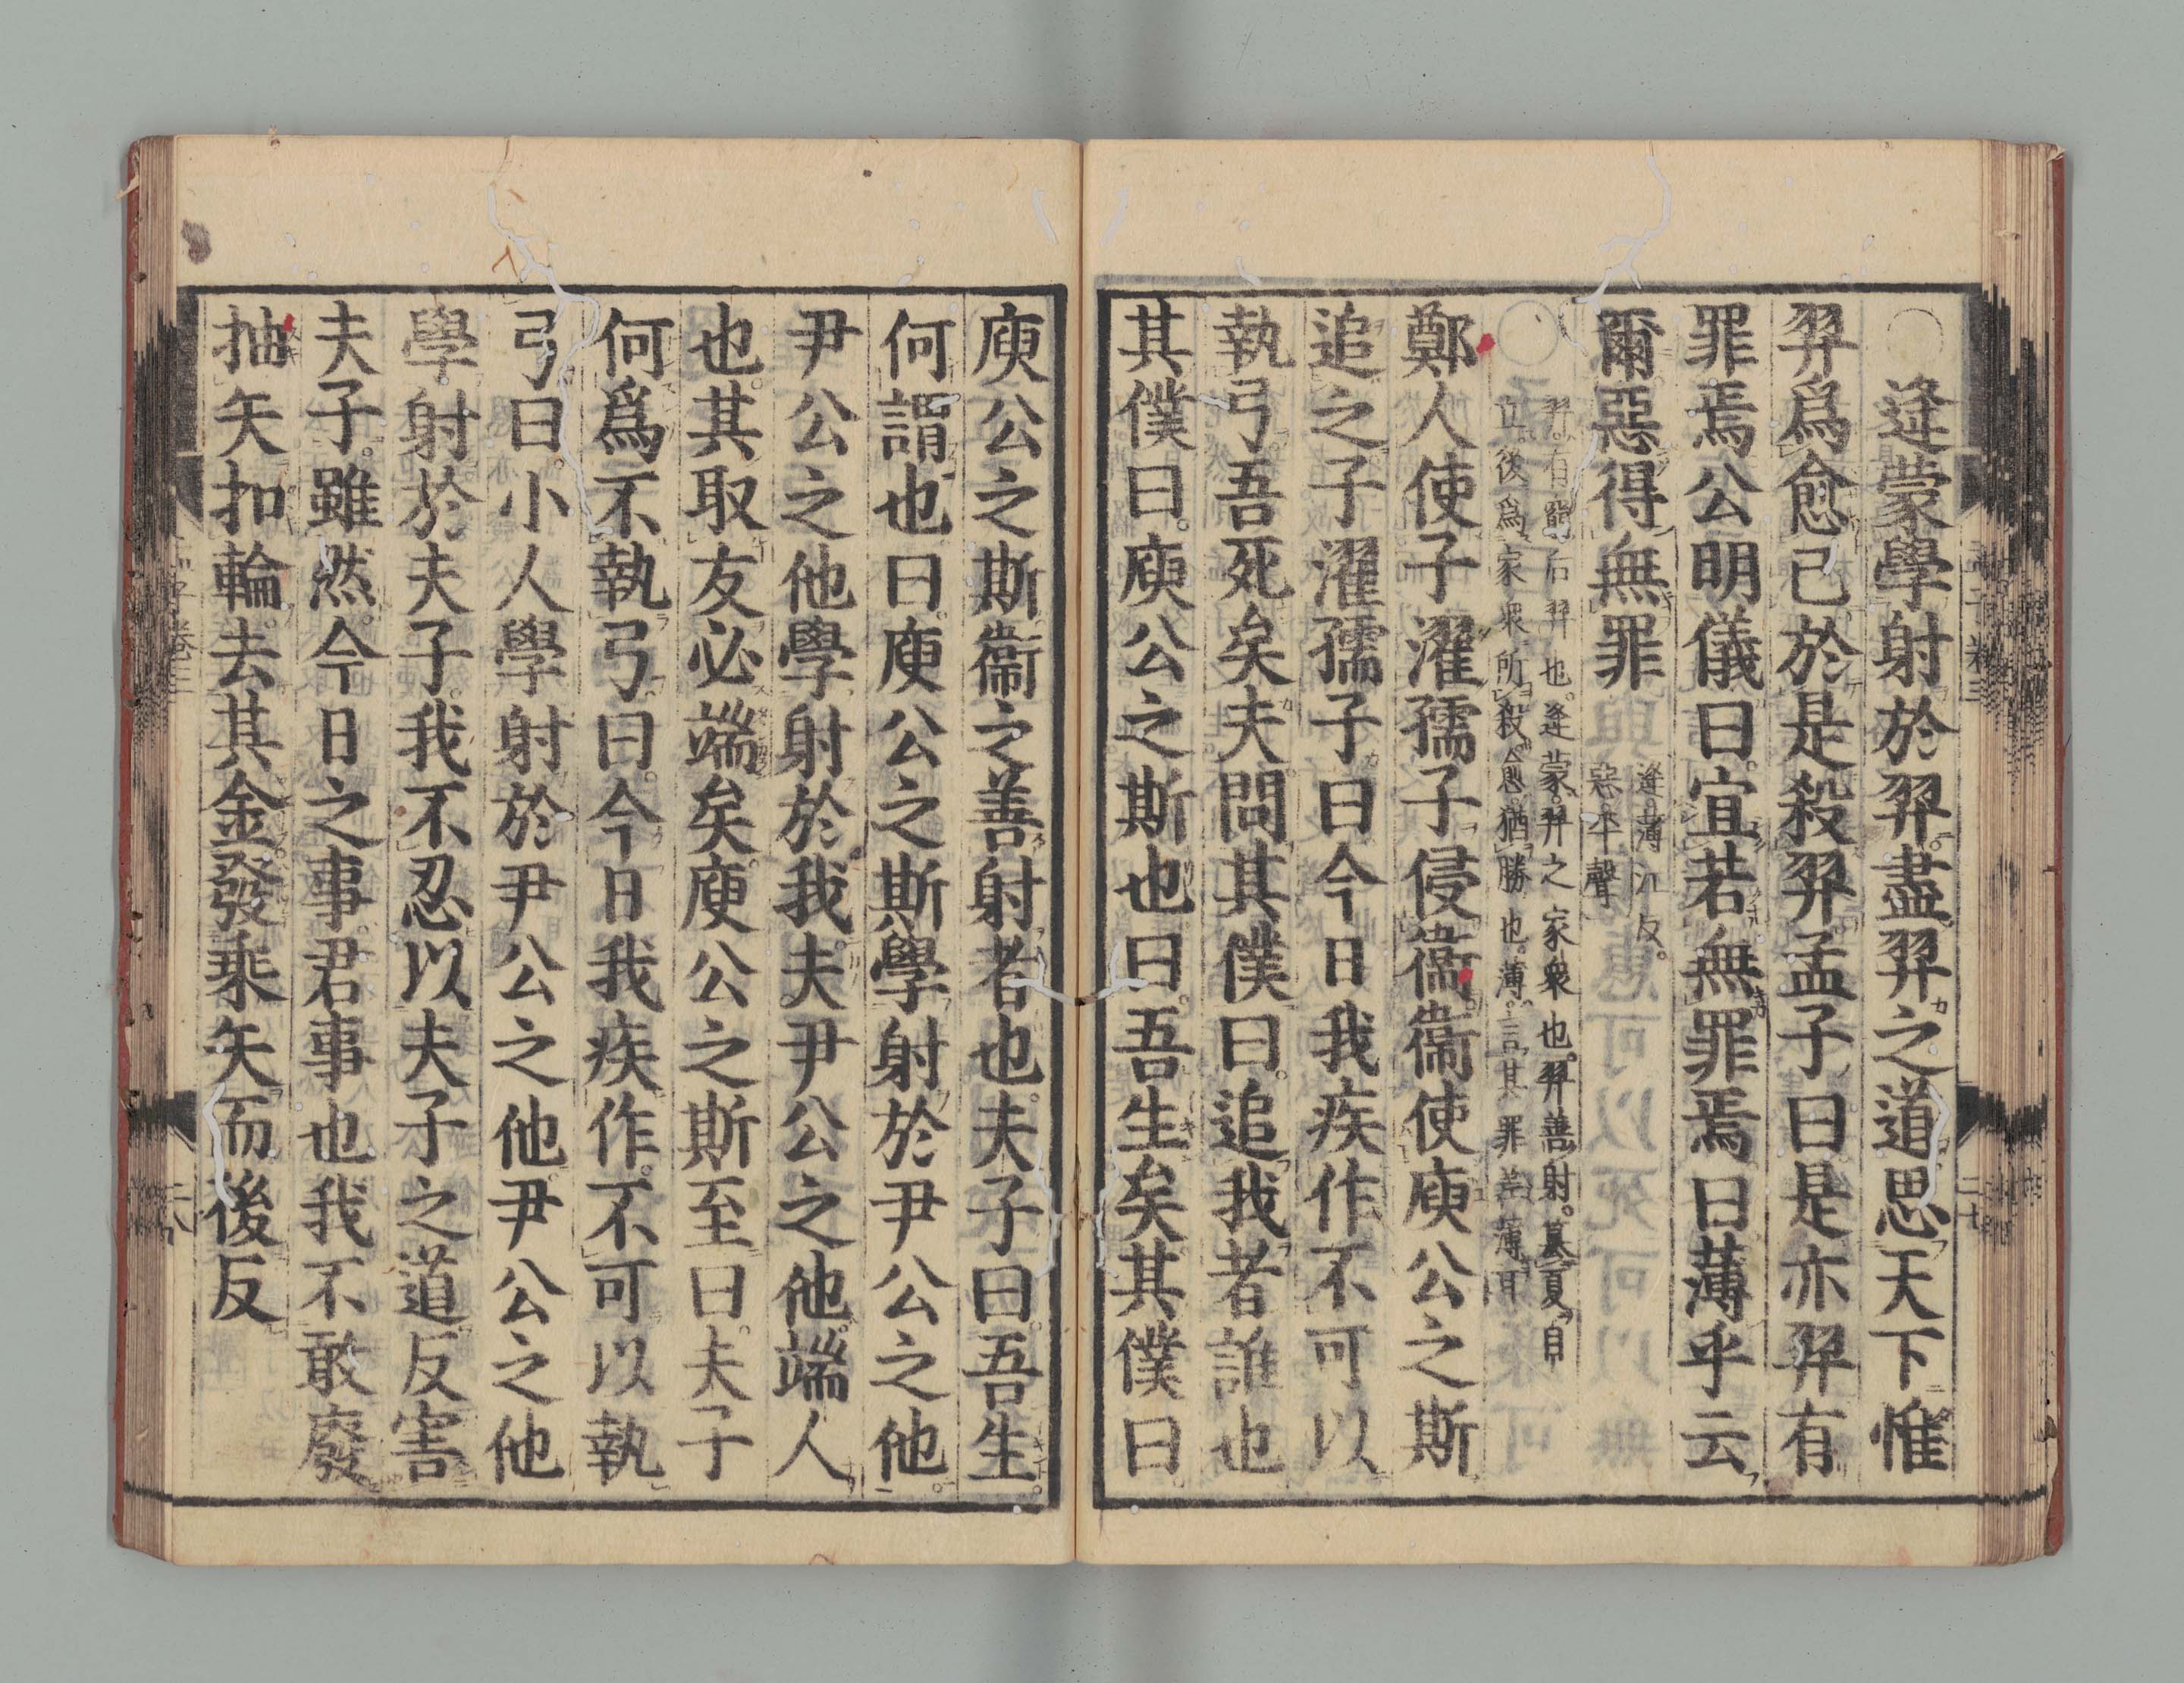 ○逄蒙學射於羿。盡羿之道思天下惟
羿爲愈己於是殺羿孟子曰是亦羿有
罪焉公明儀曰。宜若無罪焉曰薄乎云
爾惡得無罪
逄薄江反。
惡平聲
○
羿。有窮后羿也。逄蒙。羿之家衆也。羿善射。簒夏自
立。後爲家衆所殺。愈。猶勝也。薄。言其罪差薄耳
鄭人使子濯孺子侵衞衞使庾公之斯
追之子濯孺子曰今日我疾作不可以
執弓。吾死矣夫問其僕曰。追我者誰也
其僕曰。庾公之斯也曰。吾生矣其僕曰
庾公之斯衞之善射者也。夫子曰。吾生。
何謂也曰。庾公之斯學射於尹公之他。
尹公之他學射於我。夫尹公之他。端人
也。其取友必端矣。庾公之斯至曰。夫子
何爲不執弓。曰。今日我疾作。不可以執
弓曰。小人學射於尹公之他。尹公之他
學射於夫子。我不忍以夫子之道反害
夫子。雖然。今日之事。君事也我不敢廢
抽矢扣輪。去其金。發乘矢而後反